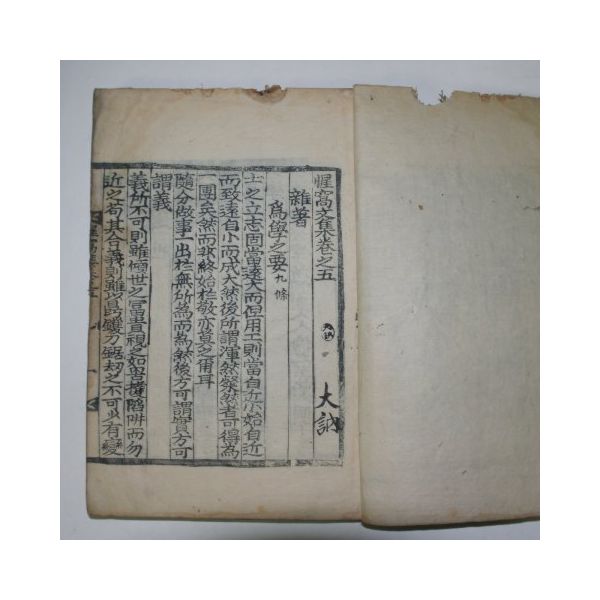 惺窩文集卷之五
大誠
雜著
爲學之要九條
士之立志固當遠大而但用工則當自近小始自近
而致遠自小而成大然後所謂渾然粲然者可得爲
一團矣然而非終始於敬亦莫之爾耳
隨分做事一出於無所爲而爲然後方可謂實方可
謂義
義所不可則雖傾世之富貴視之如罟擭陷阱而勿
近之苟其合義則雖以鼎鑊刀鋸劫之不可少有變